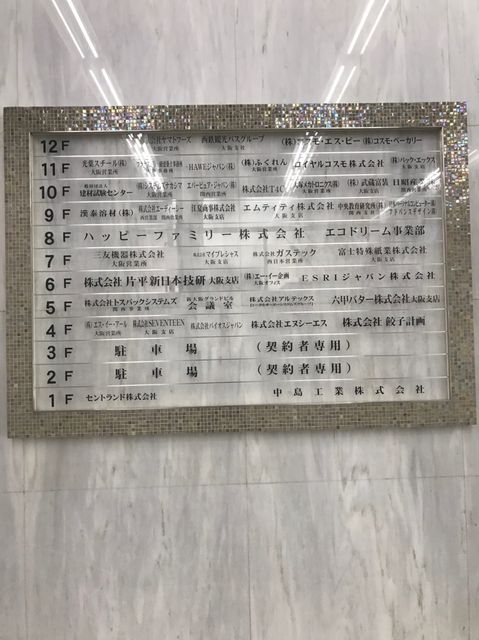 12F 西鉄観光バスグループ 大阪支社 (株)エフエム・エス・ビー (株)コスモ・ベーカリー
11F 光葉スチール(株) 大阪営業所 HAWEジャパン(株) (株)ふくれん 大阪営業所 ロイヤルコスモ株式会社 (株)パック・エックス 大阪支店
10F 建材試験センター エバーピュア・ジャパン(株) 株式会社T4C 大塚メカトロニクス(株) (株)武蔵富装
9F 漢泰溶材(株) 株式会社エーディーシー 江夏商事株式会社 大阪支店 エムティティ株式会社 大阪支店 中央教育研究所(株) 関西支社
8F ハッピーファミリー株式会社 エコドリーム事業部
7F 三友機器株式会社 大阪営業所 マイプレシャス 大阪支店 株式会社ガステック 西日本営業所 富士特殊紙業株式会社 大阪支店
6F 株式会社片平新日本技研大阪支店 (株)エー・イー企画 大阪オフィス ESRIジャパン株式会社
5F 株式会社トスバックシステムズ 関西事業所 新大阪グランドビル 会議室 株式会社アルテックス 六甲バター株式会社大阪支店
4F (株)エス・イー・アール 大阪営業所 株式会社SEVENTEEN 大阪支店 株式会社バイオスジャパン 株式会社エヌシーエス 株式会社餃子計画
3F 駐車場 (契約者専用)
2F 駐車場 (契約者専用)
1F セントランド株式会社 中島工業株式会社